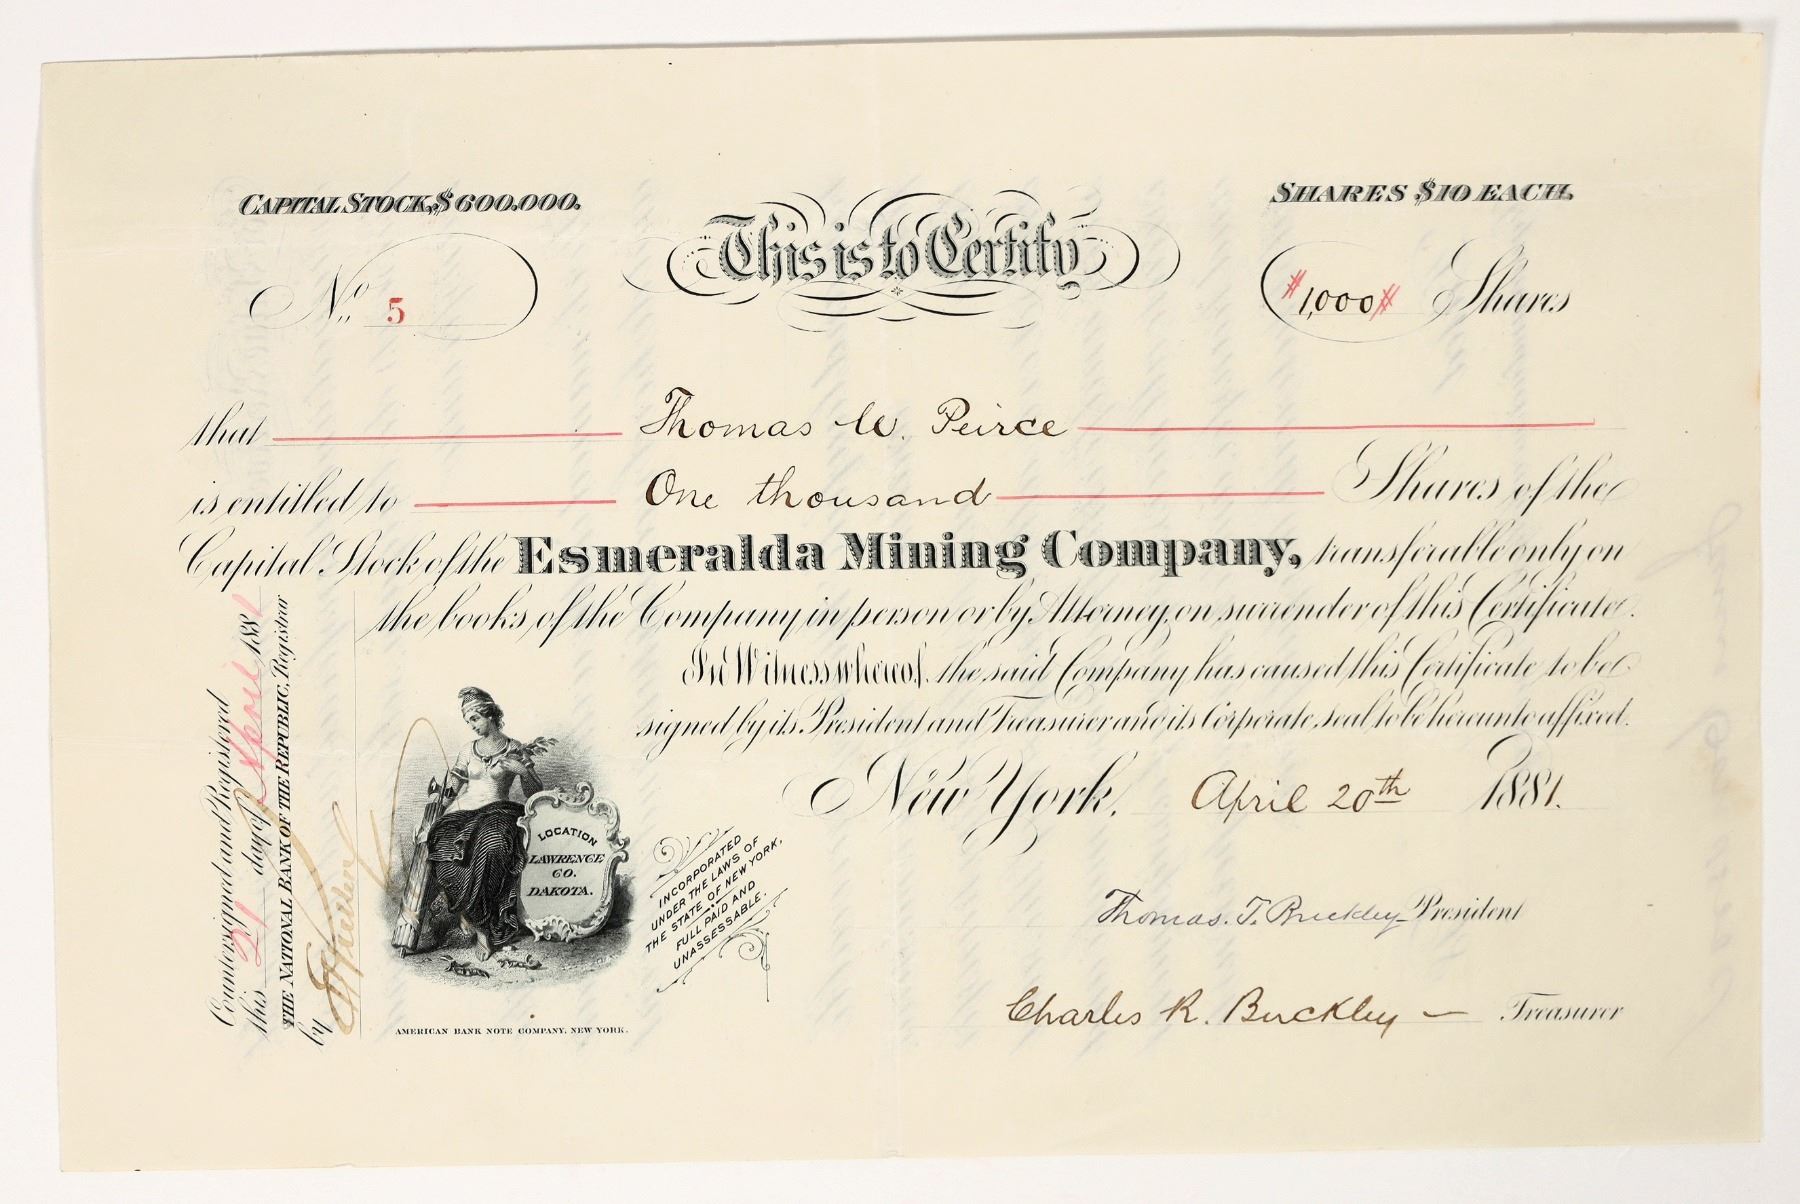 CAPITAL STOCK, $600,000.
SHARES $10 EACH.
This is to Certify
No. 5
#1,000# Shares
that Thomas W. Peirce
is entitled to One thousand Shares of the
Capital Stock of the Esmeralda Mining Company, transferable only on
the books of the Company in person or by Attorney, on surrender of this Certificate.
In Witness whereof, the said Company has caused this Certificate to be
signed by its President and Treasurer and its Corporate seal to be hereunto affixed.
New York, April 20th 1881.
Thomas. T. Buckley President
Charles R. Buckley — Treasurer
Countersigned and Registered
this 21 day of April 1881
THE NATIONAL BANK OF THE REPUBLIC, Registrar
by
LOCATION
LAWRENCE
CO.
DAKOTA.
INCORPORATED
UNDER THE LAWS OF
THE STATE OF NEW YORK,
FULL PAID AND
UNASSESSABLE.
AMERICAN BANK NOTE COMPANY, NEW YORK.